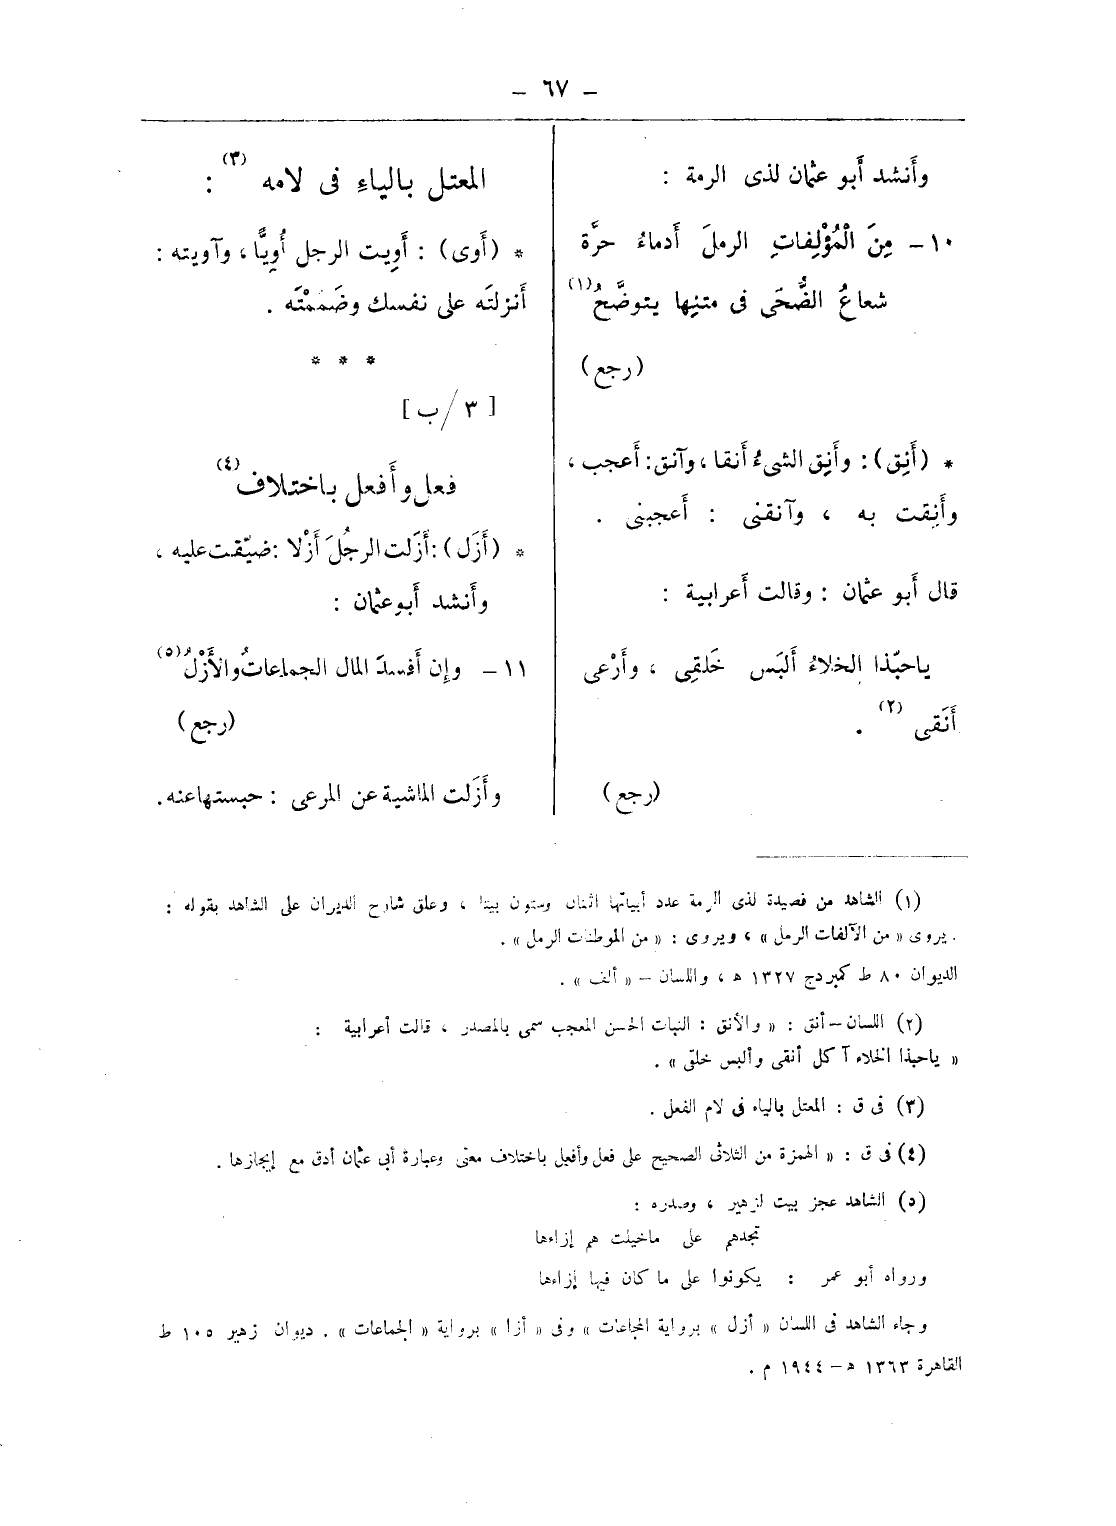 - ٦٧ -
وأَنشد أَبو عثمان لذى الرمة :
١٠- مِنَ الْمُؤْلِفاتِ الرملَ أَدماءُ حرَّة
شعاعُ الضُّحَى فى متنِها يتوضَّحُ (١)
(رجع)
* (أَنِق) : وأَنِق الشىءُ أَنقا ، وآنق : أَعجب ،
وأَنِقت به ، وآنقنى : أَعجبنى .
قال أَبو عثمان : وقالت أَعرابية :
ياحبّذا الخلاءُ أَلبَس خَلقِى ، وأَرْعى
أَنَقى (٢) .
(رجع)
المعتل بالياءِ فى لامه (٣) :
* (أَوى) : أَوِيت الرجل أُوِيًّا ، وآويته :
أَنزلتَه على نفسك وضَمَمْتَه .
* * *
[ ٣ /ب ]
فعل وأَفعل باختلاف (٤)
* (أَزَل) : أَزَلت الرجُلَ أَزْلا : ضيّقت عليه ،
وأَنشد أَبوعثمان :
١١ - وإِن أَفسدَ المال الجماعاتُ والأَزْلُ (٥)
(رجع)
وأَزَلت الماشية عن المرعى : حبستها عنه.
(١) الشاهد من قصيدة لذى الرمة عدد أبياتها اثنان وستون بيتا ، وعلق شارح الديوان على الشاهد بقوله :
. يروى « من الآلفات الرمل » ، ويروى : « من الموطنات الرمل » .
الديوان ٨٠ ط كمبردج ١٣٢٧ ه ، واللسان – « ألف » .
(٢) اللسان – أنق : « والأنق : النبات الحسن المعجب سمى بالمصدر ، قالت أعرابية :
« ياحبذا الخلاء آ كل أنقى وألبس خلقى » .
(٣) فى ق : المعتل بالياء فى لام الفعل .
(٤) فى ق : « الهمزة من الثلاثى الصحيح على فعل وأفعل باختلاف معنى وعبارة أبى عثمان أدق مع إيجازها .
(٥) الشاهد عجز بيت لزهير ، وصدره :
تجدهم على ماخيلت هم إزاءها
ورواه أبو عمر : يكونوا على ما كان فيها إزاءها
وجاء الشاهد فى اللسان « أزل » برواية المجاعات » وفى « أزا » برواية « الجماعات » . ديوان زهير ١٠٥ ط
القاهرة ١٣٦٣ ه – ١٩٤٤ م .